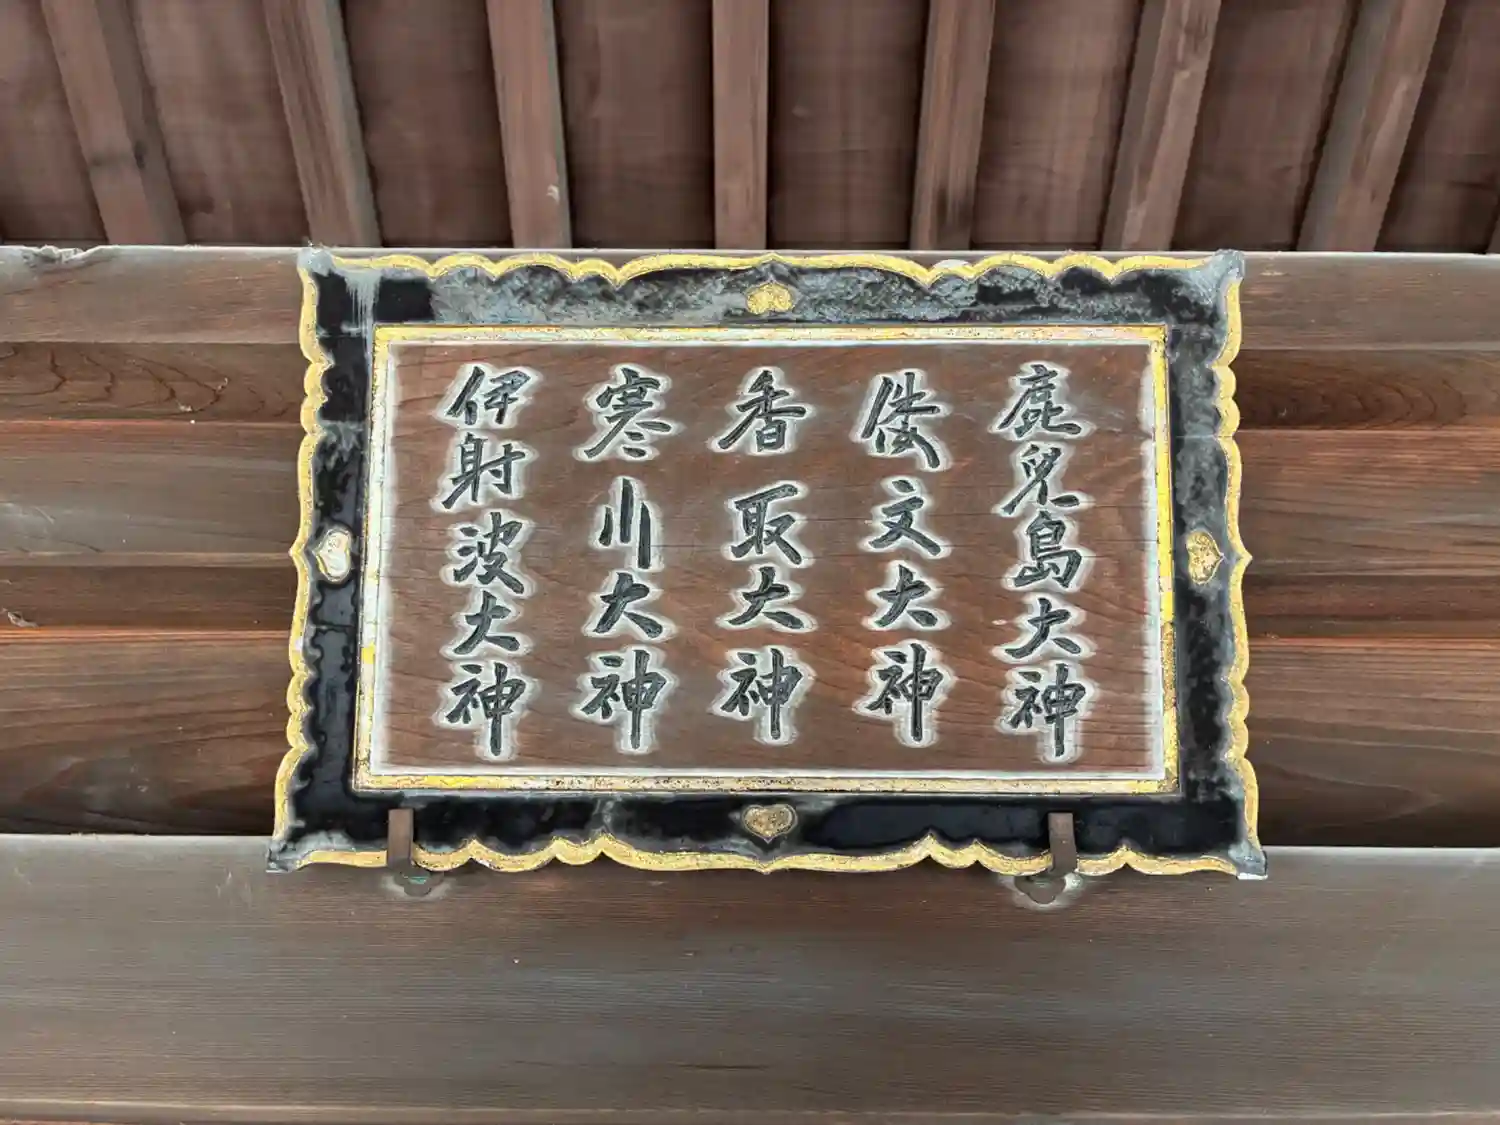 鹿兒島大神
倭文大神
香取大神
寒川大神
伊射波大神